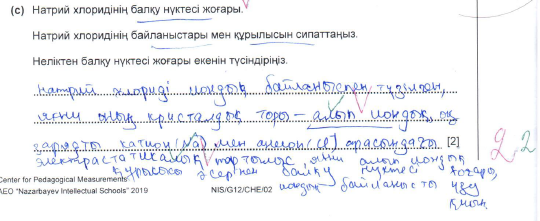 (c) Натрий хлоридінің балқу нүктесі жоғары.
Натрий хлоридінің байланыстары мен құрылысын сипаттаңыз.
Неліктен балқу нүктесі жоғары екенін түсіндіріңіз.
натрий хлориді иондық байланыспен түзілген,
яғни оның кристалдық торы – алып иондық, оң
зарядты катион (Na) мен анион (Cl) арасындағы [2]
электрастатикалық тартылыс, яғни алып иондық
құрылысы әсерінен балқу нүктесі жоғары,
иондық байланысты үзу
қиын
2 2
Center for Pedagogical Measurements
AEO "Nazarbayev Intellectual Schools" 2019 NIS/G12/CHE/02